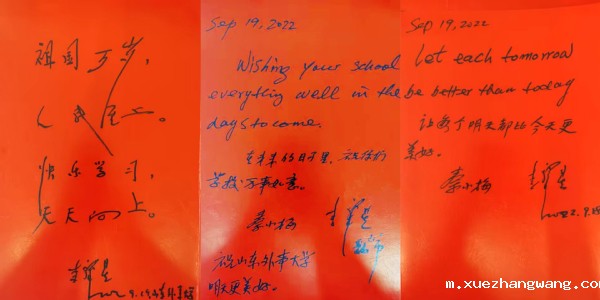 祖国万岁，
人民至上。
快乐学习，
天天向上。
Sep 19, 2022
Wishing your school
everything well in the
days to come.
在未来的日子里，祝你们
学校万事如意。
秦小梅
祝山东外事大学
明天更美好。
Sep 19, 2022
Let each tomorrow
be better than today
让每个明天都比今天更
美好。
秦小梅
m.xuezhangwang.com